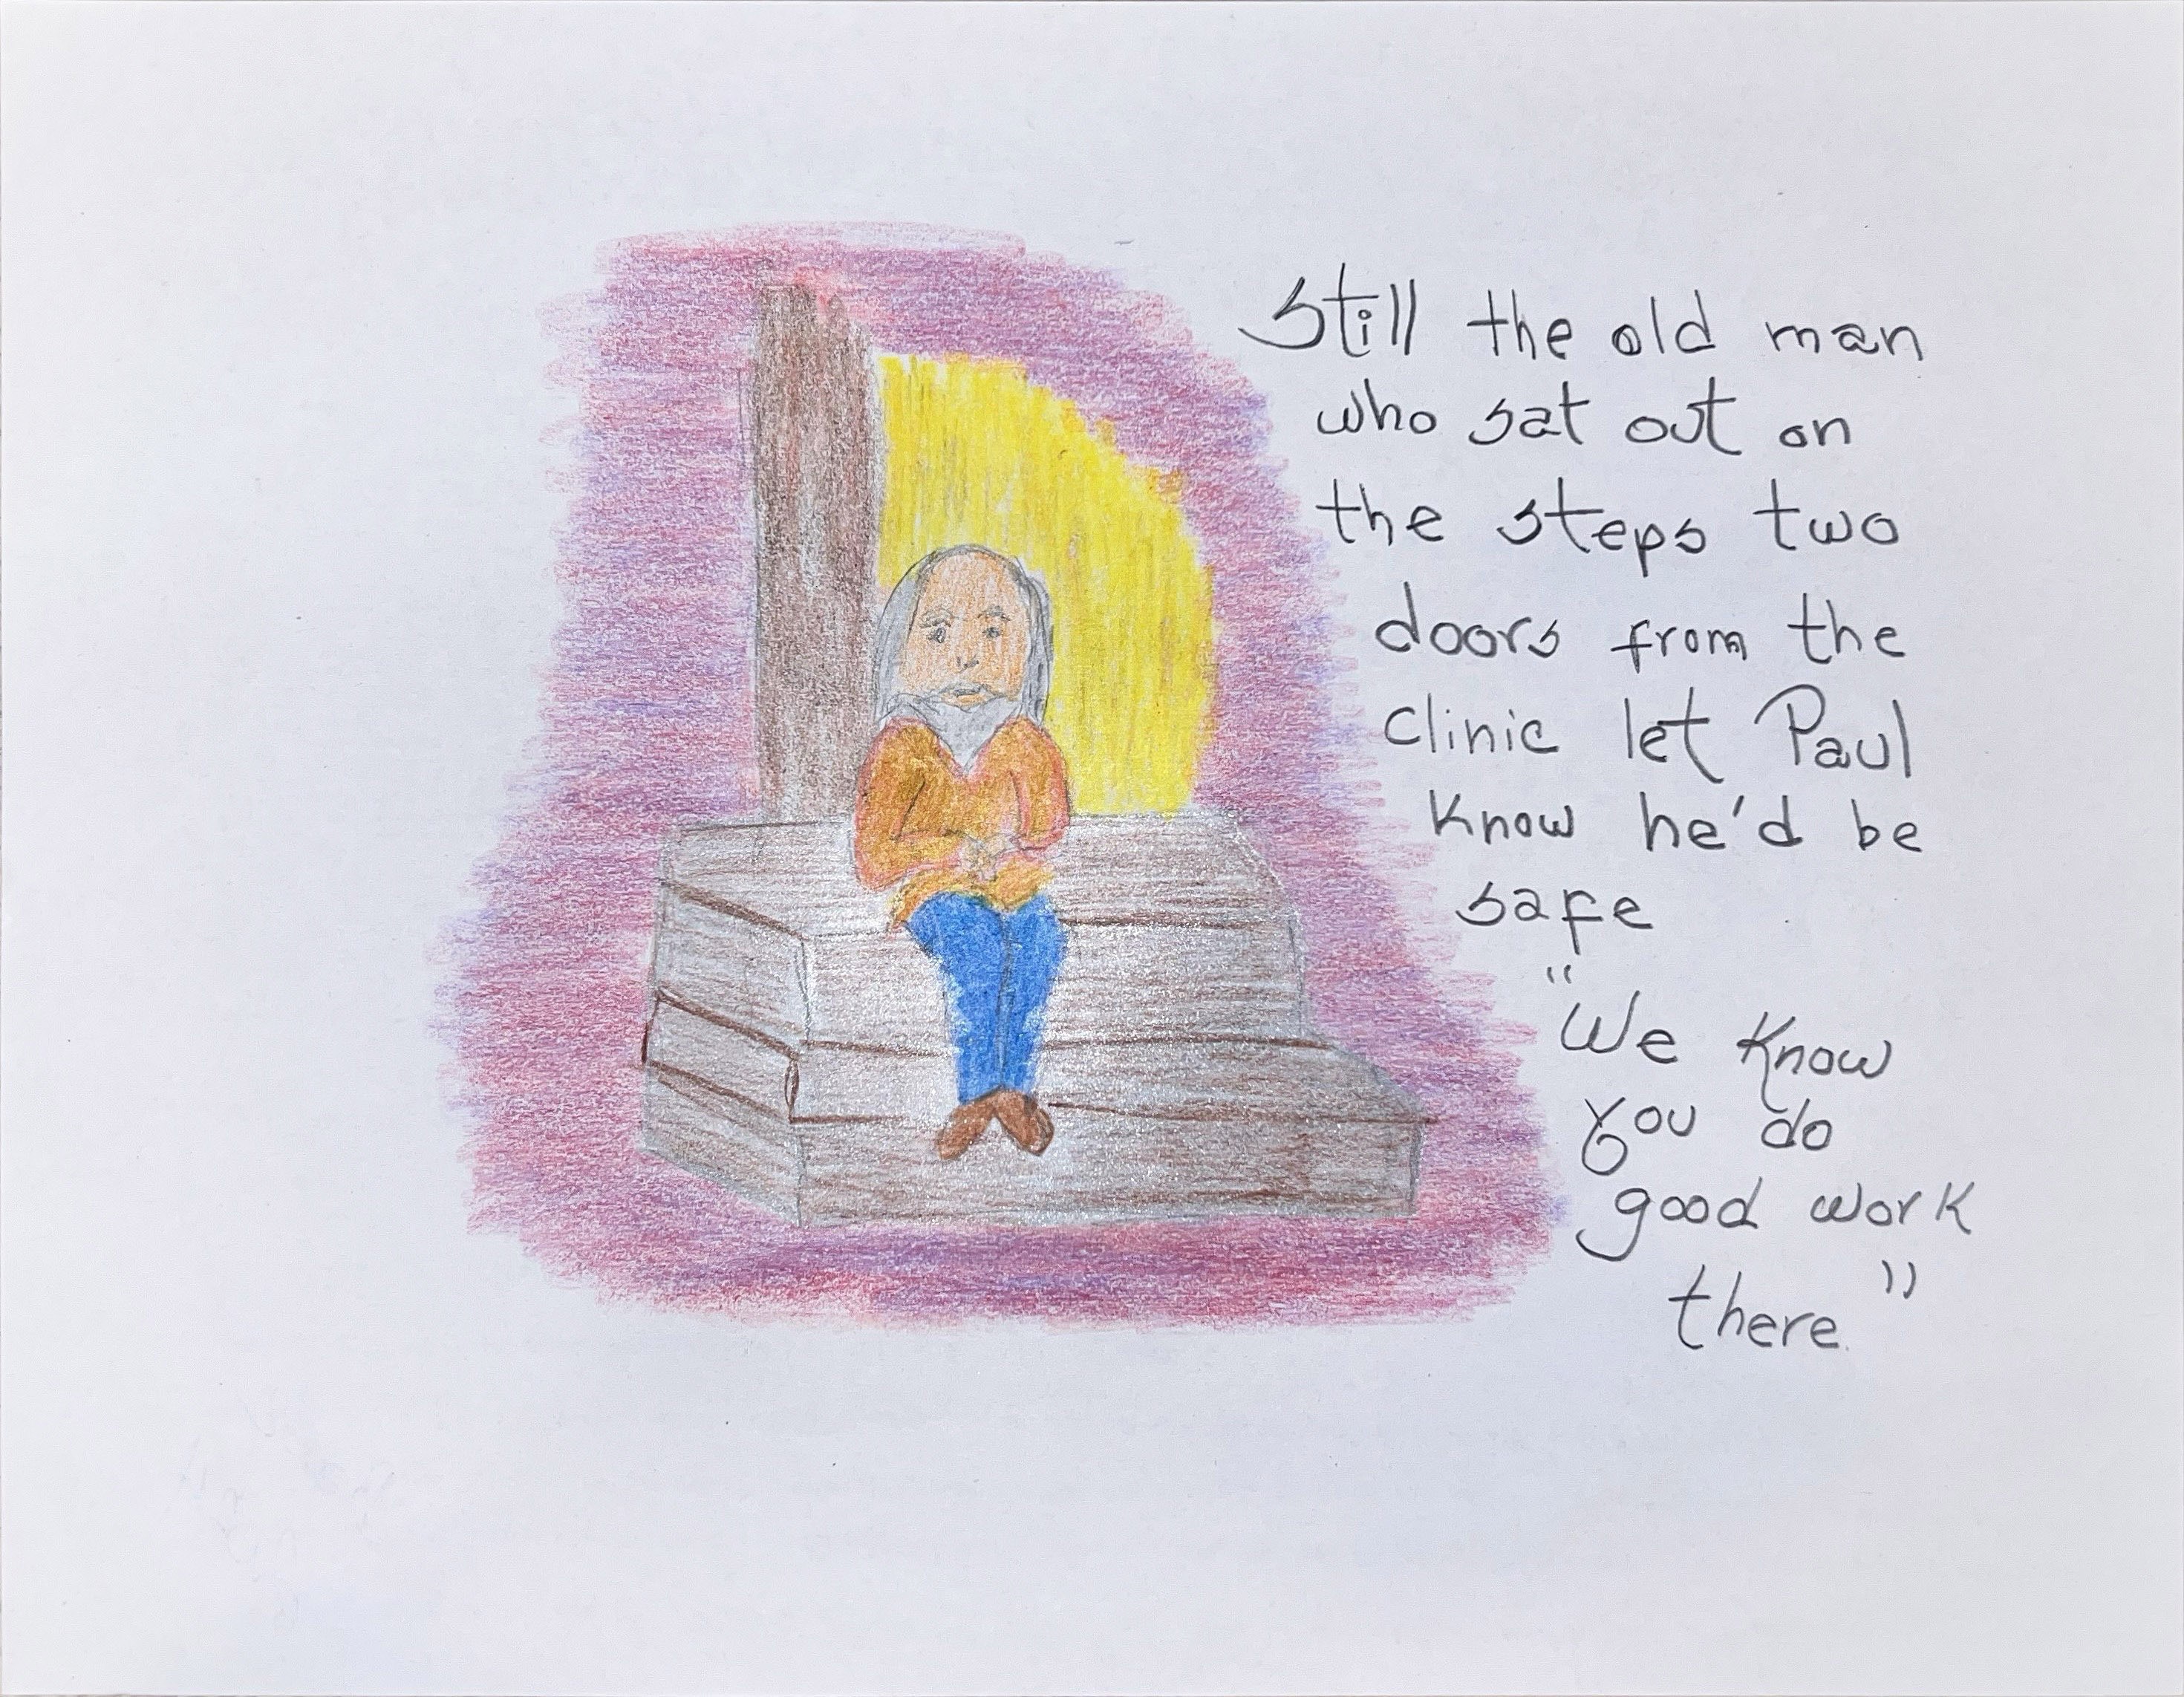 Still the old man
who sat out on
the steps two
doors from the
clinic let Paul
know he'd be
safe
"We know
you do
good work
there."